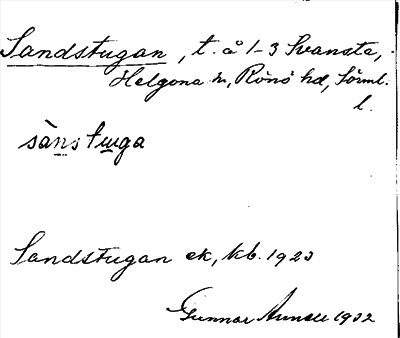 Sandstugan, t. å 1-3 Svansta,
Helgona sn, Rönö hd, Sörml.
l.
sànstuga
Sandstugan ek, kb. 1923
Gunnar 1932